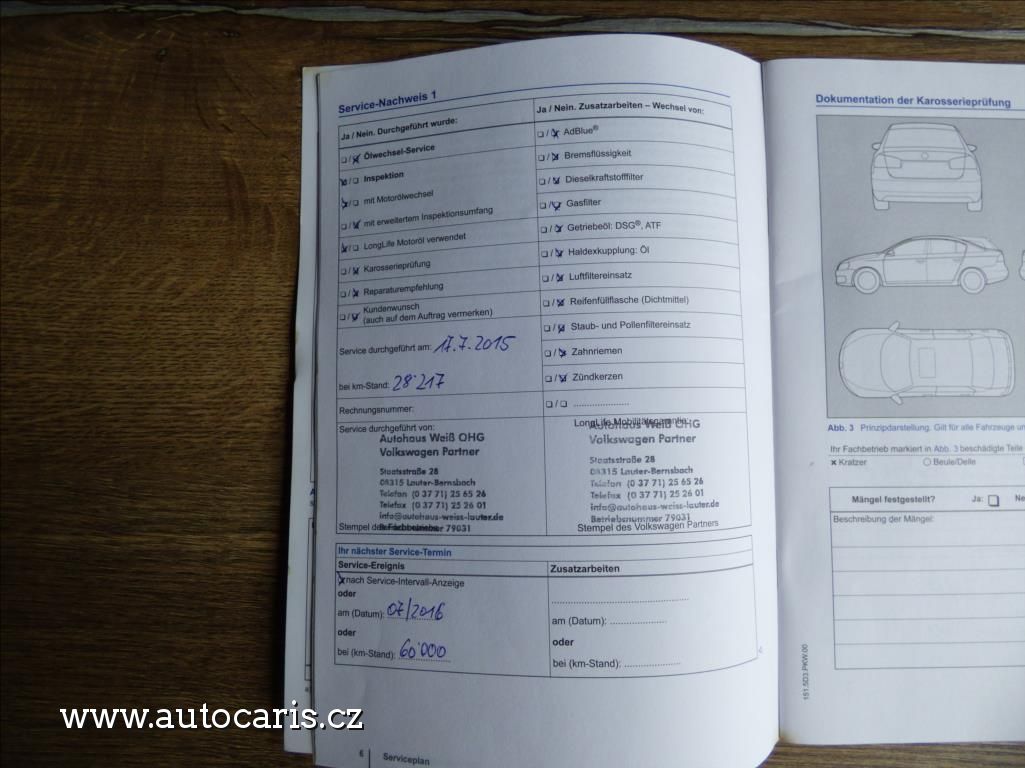 Service-Nachweis 1
Ja / Nein. Durchgeführt wurde:
Ölwechsel-Service
Inspektion
mit Motorölwechsel
mit erweitertem Inspektionsumfang
LongLife Motoröl verwendet
Karosserieprüfung
Reparaturempfehlung
Kundenwunsch
(auch auf dem Auftrag vermerken)
Service durchgeführt am: 17.7.2015
bei km-Stand: 28'217
Rechnungsnummer:
Service durchgeführt von:
Autohaus Weiß OHG
Volkswagen Partner
Staatsstraße 28
08315 Lauter-Bernsbach
Telefon (0 37 71) 25 65 26
Telefax (0 37 71) 25 26 01
info@autohaus-weiss-lauter.de
Betriebsnummer 79031
Stempel des Fachbetriebs
Ja / Nein. Zusatzarbeiten – Wechsel von:
AdBlue®
Bremsflüssigkeit
Dieselkraftstofffilter
Gasfilter
Getriebeöl: DSG®, ATF
Haldexkupplung: Öl
Luftfiltereinsatz
Reifenfüllflasche (Dichtmittel)
Staub- und Pollenfiltereinsatz
Zahnriemen
Zündkerzen
LongLife Mobilitätsgarantie:
Autohaus Weiß OHG
Volkswagen Partner
Staatsstraße 28
08315 Lauter-Bernsbach
Telefon (0 37 71) 25 65 26
Telefax (0 37 71) 25 26 01
info@autohaus-weiss-lauter.de
Betriebsnummer 79031
Stempel des Volkswagen Partners
Ihr nächster Service-Termin
Service-Ereignis
nach Service-Intervall-Anzeige
oder
am (Datum): 07/2016
oder
bei (km-Stand): 60'000
Zusatzarbeiten
am (Datum):
oder
bei (km-Stand):
6 Serviceplan
Dokumentation der Karosserieprüfung
Abb. 3 Prinzipdarstellung. Gilt für alle Fahrzeuge
Ihr Fachbetrieb markiert in Abb. 3 beschädigte Teile
x Kratzer
Beule/Delle
Mängel festgestellt? Ja:
Beschreibung der Mängel:
151.5D3.PKW.00
www.autocaris.cz